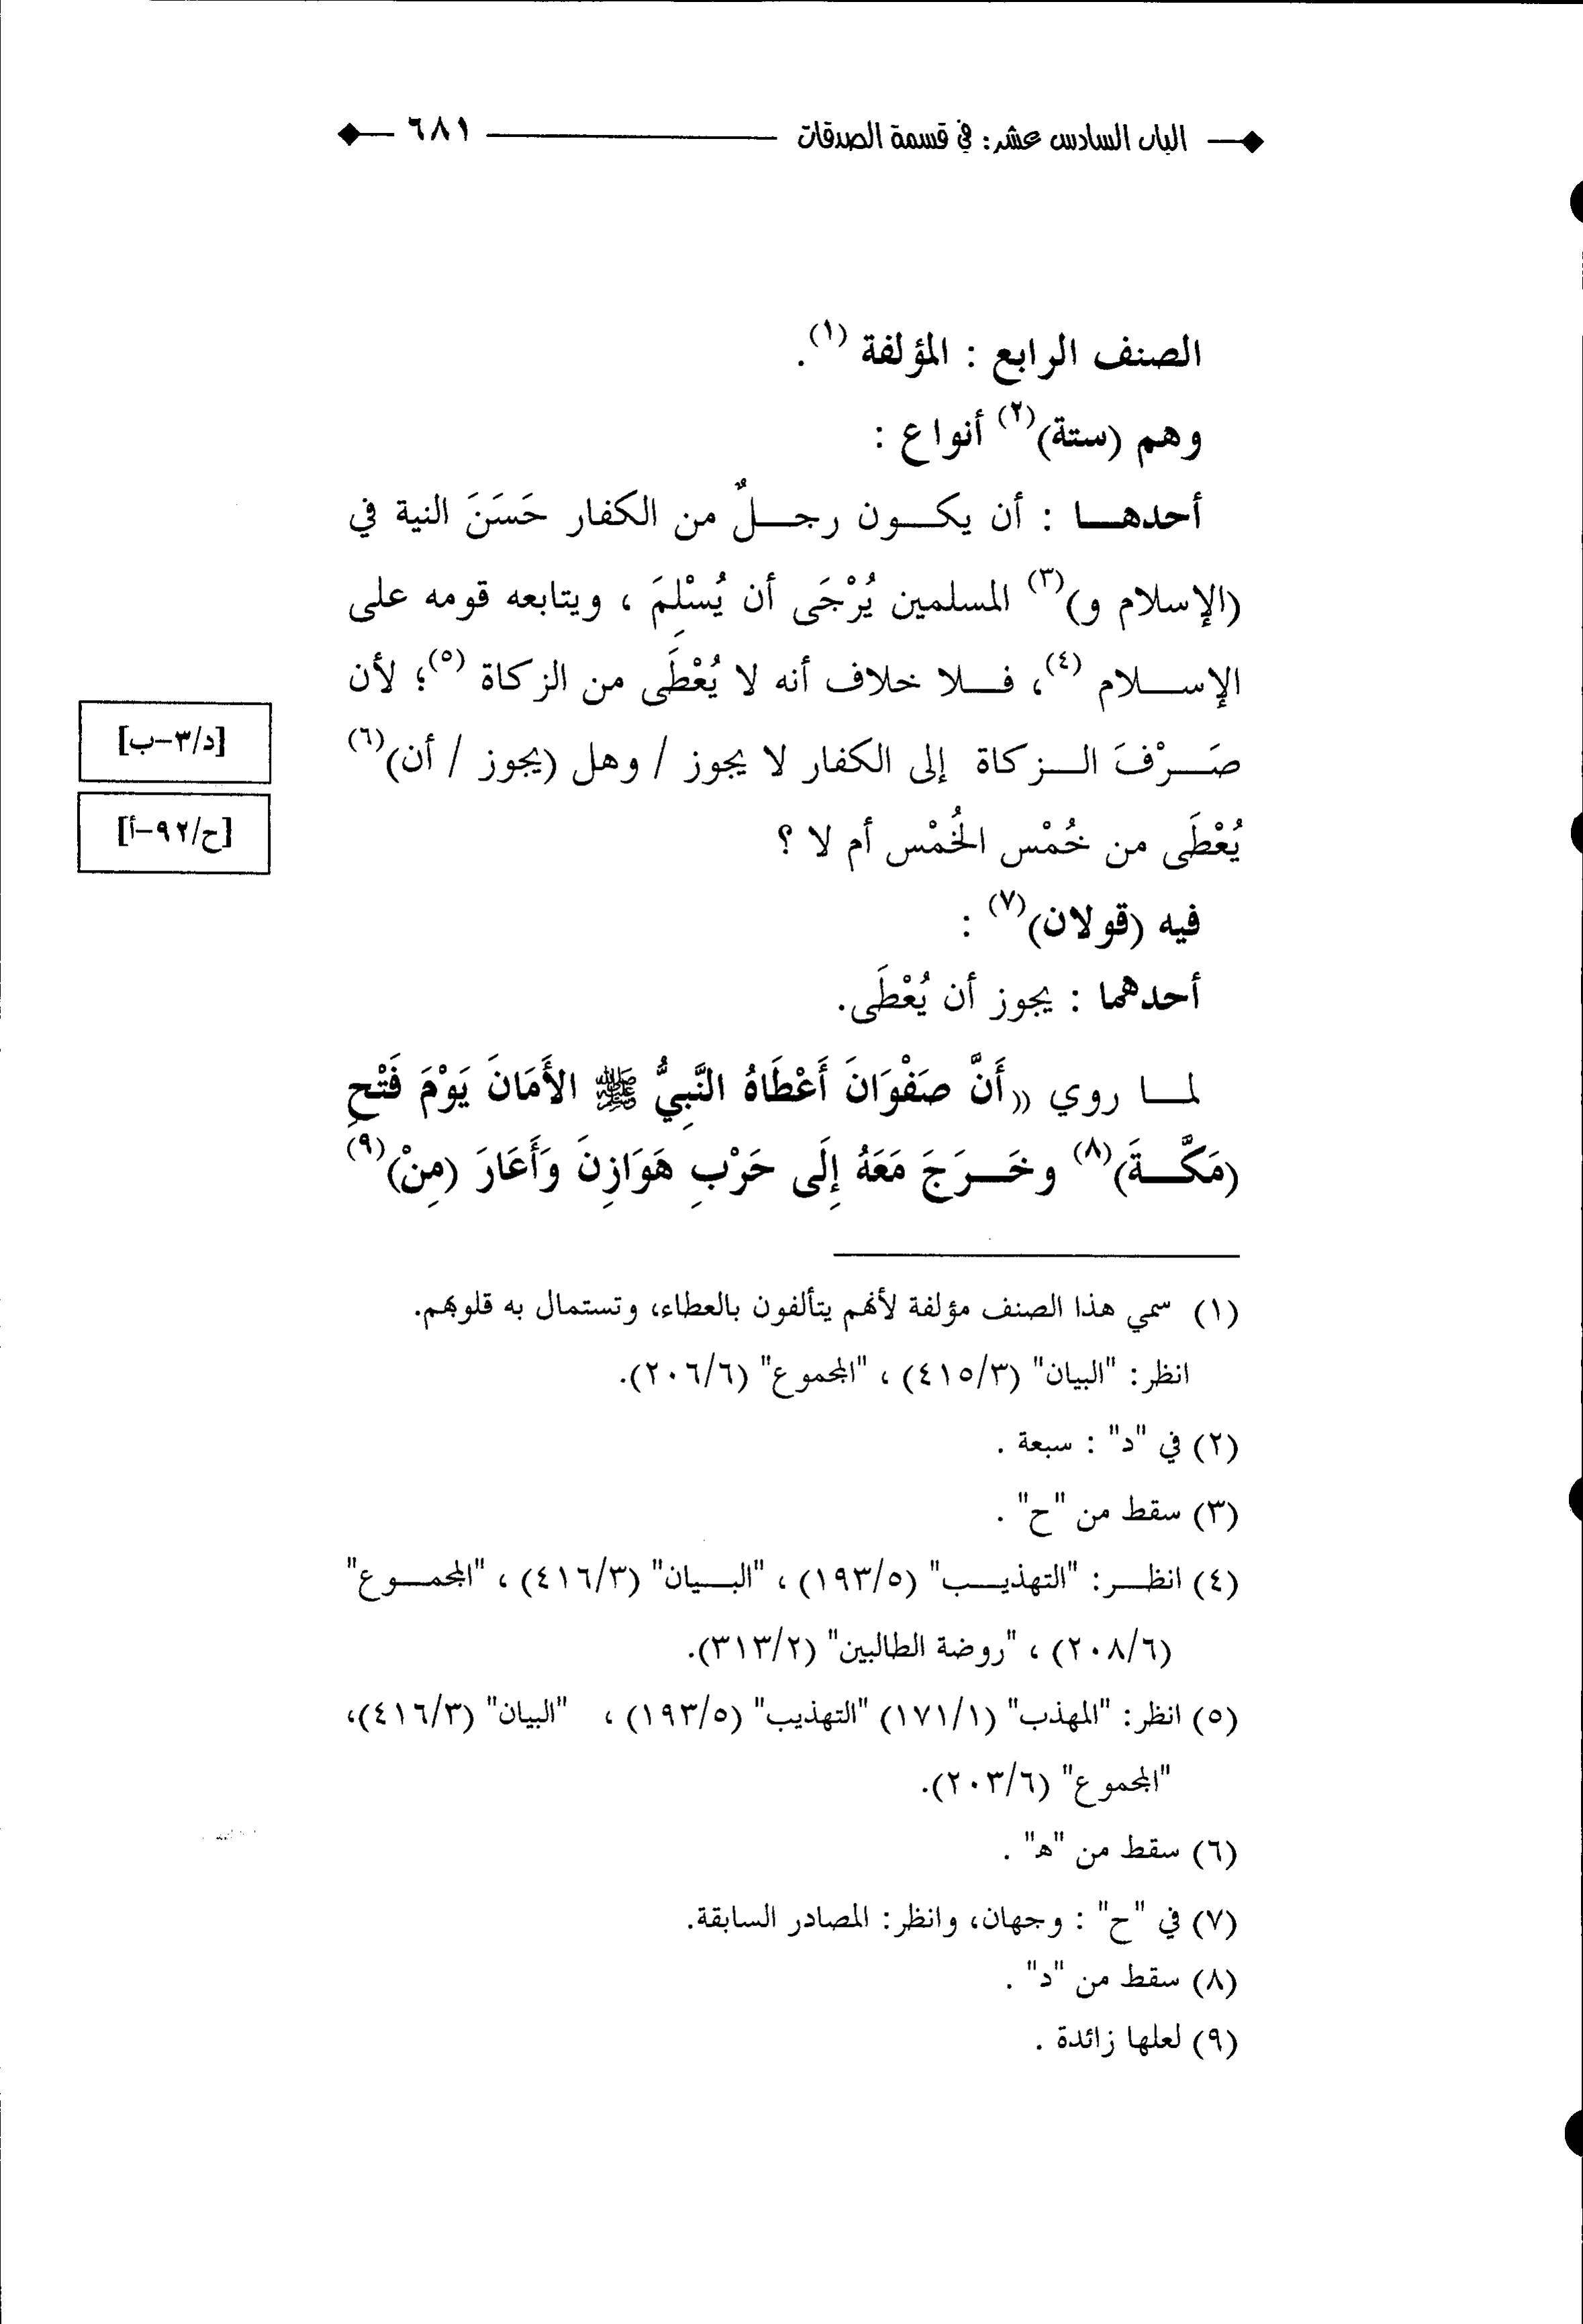 الباب السادس عشر: في قسمة الصدقات ٦٨١
الصنف الرابع : المؤلفة (١).
وهم (ستة)(٢) أنواع :
أحدهـــا : أن يكـــون رجـــلٌ من الكفار حَسَنَ النية في
(الإسلام و)(٣) المسلمين يُرْجَى أن يُسْلِمَ ، ويتابعه قومه على
الإســـلام (٤)، فـــلا خلاف أنه لا يُعْطَى من الزكاة (٥)؛ لأن
صَـــرْفَ الـــزكاة إلى الكفار لا يجوز / وهل (يجوز / أن)(٦)
[د/٣-ب]
[ح/٩٢-أ]
يُعْطَى من خُمْس الخُمْس أم لا ؟
فيه (قولان)(٧) :
أحدهما : يجوز أن يُعْطَى.
لمـــا روي «أَنَّ صَفْوَانَ أَعْطَاهُ النَّبِيُّ ﷺ الأَمَانَ يَوْمَ فَتْحِ
(مَكَّـــةَ)(٨) وخَـــرَجَ مَعَهُ إِلَى حَرْبِ هَوَازِنَ وَأَعَارَ (مِنْ)(٩)
(١) سمي هذا الصنف مؤلفة لأنهم يتألفون بالعطاء، وتستمال به قلوبهم.
انظر: "البيان" (٤١٥/٣) ، "المجموع" (٢٠٦/٦).
(٢) في "د" : سبعة .
(٣) سقط من "ح" .
(٤) انظـــر: "التهذيـــب" (١٩٣/٥) ، "البـــيان" (٤١٦/٣) ، "المجمـــوع"
(٢٠٨/٦) ، "روضة الطالبين" (٣١٣/٢).
(٥) انظر: "المهذب" (١٧١/١) "التهذيب" (١٩٣/٥) ، "البيان" (٤١٦/٣)،
"المجموع" (٢٠٣/٦).
(٦) سقط من "ه" .
(٧) في "ح" : وجهان، وانظر: المصادر السابقة.
(٨) سقط من "د" .
(٩) لعلها زائدة .